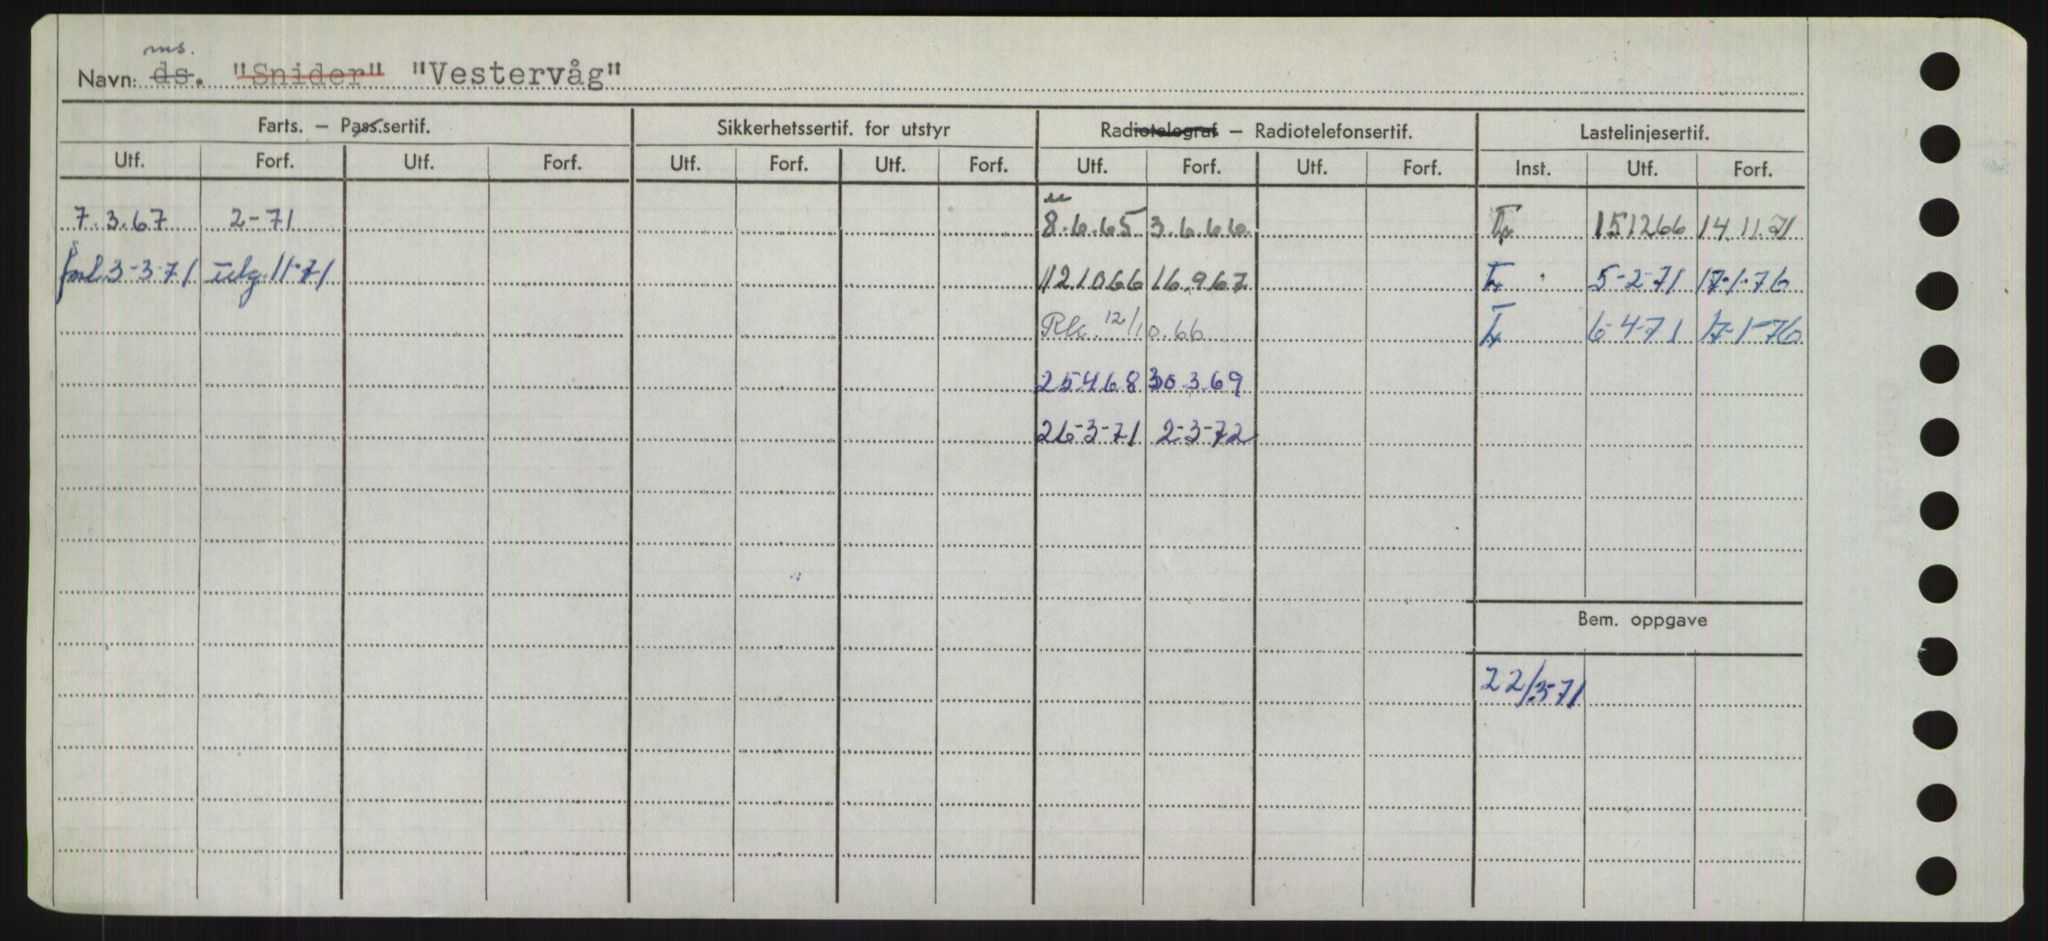 ms.
Navn: ds. "Snider" "Vestervåg"
Farts. — Pass.sertif. Sikkerhetssertif. for utstyr Radiotelegraf — Radiotelefonsertif. Lastelinjesertif.
Utf. Forf. Utf. Forf. Utf. Forf. Utf. Forf. Utf. Forf. Utf. Forf. Inst. Utf. Forf.
7.3.67 2-71 8.6.65 3.6.66 151266 14.11.71
forl 3-3-71 utg. 11-71 121066 16.9.67 5-2-71 17-1-76
12/10.66 6-4-71 17-1-76
25468 30.3.69
26-3-71 2-3-72
Bem. oppgave
22/3-71